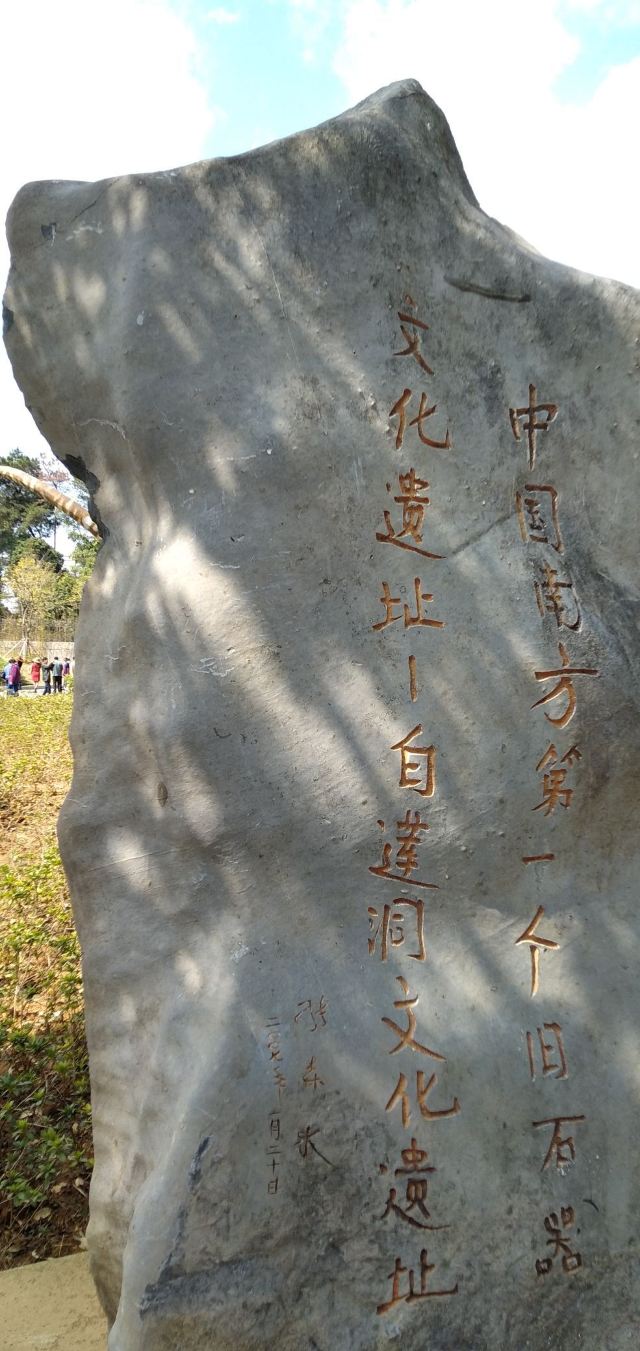 中国南方第一个旧石器
文化遗址—白莲洞文化遗址
二〇〇七年一月二十日